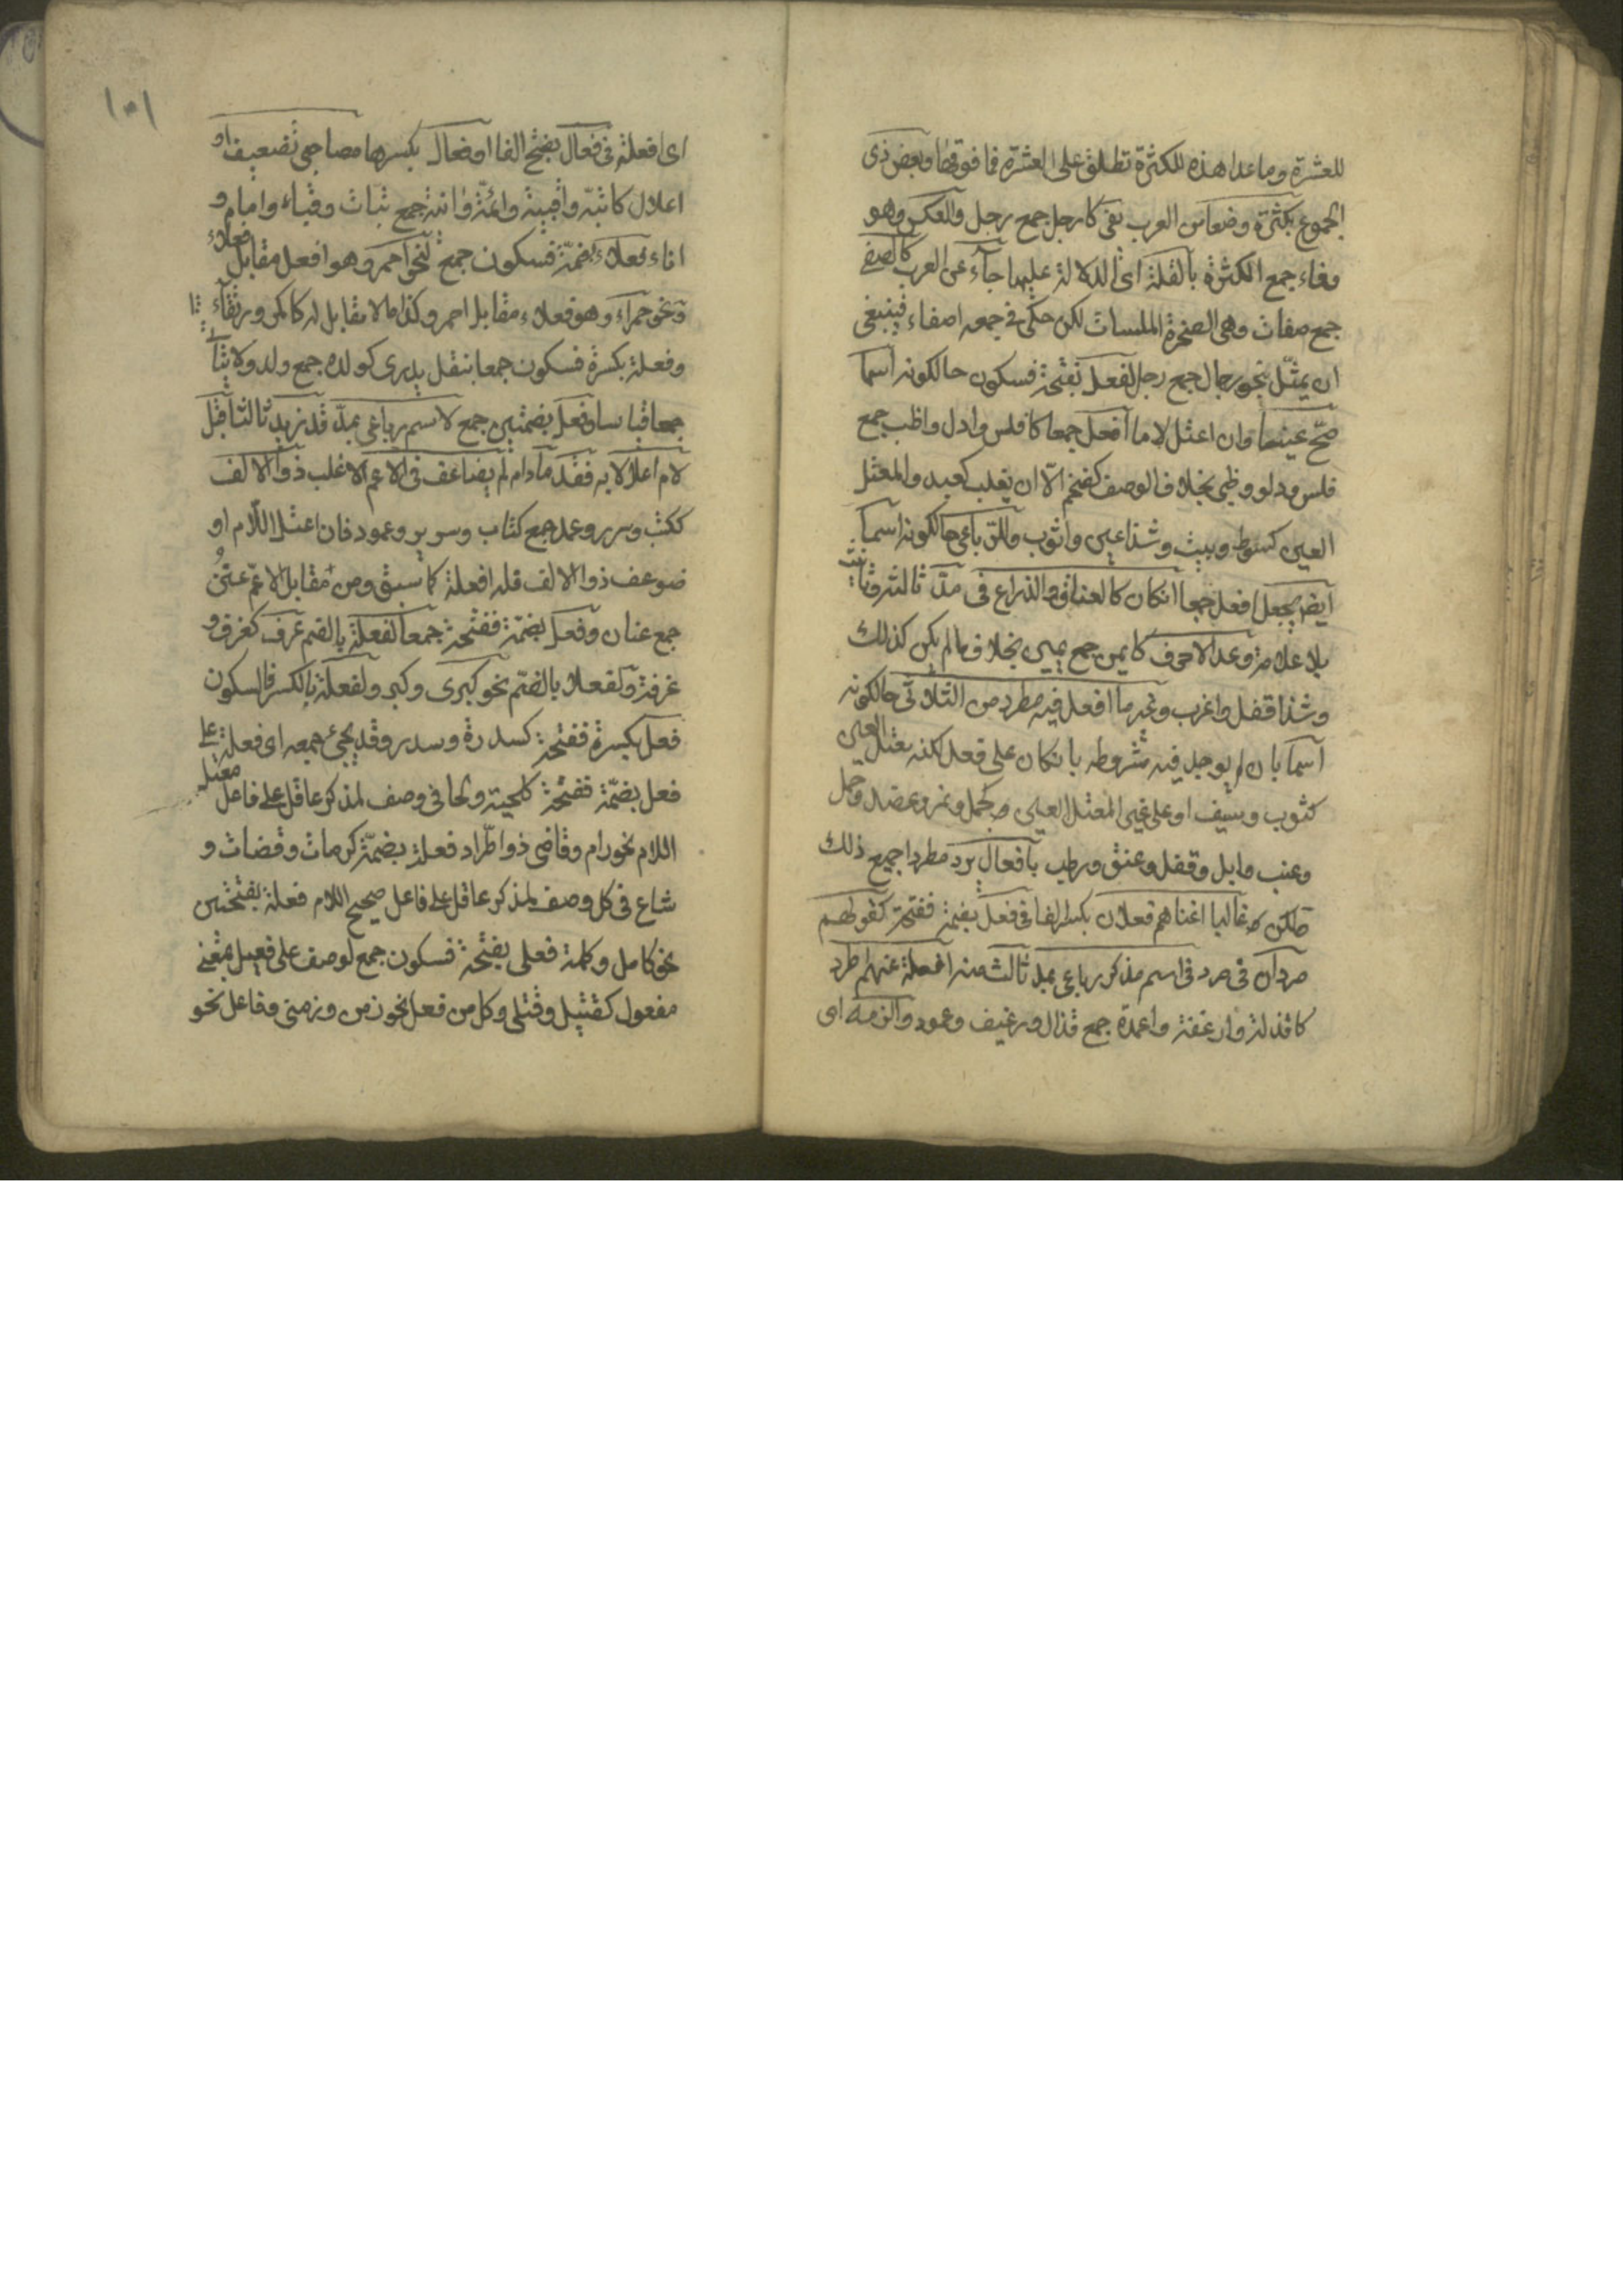 للعشرة وما عدا هذه للكثرة تطلق على العشرة فما فوقها وبعض ذى
الجموع بكثرة وضعا من العرب يفى كارجل جمع رجل والعكس وهو
وفاء جمع الكثرة بالقلة اى الدلالة عليها جآء عن العرب كالصفى
جمع صفات وهى الصخرة الملسات لكن حكى فى جمعه اصفاء فينبغى
ان يمثّل بنحو رجال جمع رجل لفعل بفتحة فسكون حالكونه اسما
صحّ عينا وان اعتل لاما افعل جمعا كافلس وادل واظب جمع
فلس ودلو وظبى بخلاف الوصف كضخم الّا ان يغلب كعبد والمعتل
العين كسوط وبيت وشذ اعين واثوب وللرّباعى حالكونه اسما
ايضا يجعل افعل جمعا ان كان كالعناق والذراع فى مدّ ثالثه وتانيث
بلا علامة وعد الاحرف كايمن جمع يمين بخلاف مالم يكن كذلك
وشذ اقفل واغرب وغير ما افعل فيه مطرد من الثلاثى حالكونه
اسما بان لم يوجد فيه شروطه بان كان على فعل لكنه معتل العين
كثوب وسيف او على غير المعتل العين كجمل ونمر وعضد وحمل
وعنب وابل وقفل وعنق ورطب بافعال يرد مطردا جميع ذلك
ولكن غالبا اغناهم فعلان بكسر الفا فى فعل بضمة ففتحة كقولهم
صردان فى صرد فى اسم مذكر رباعى بمد ثالث منه افعلة عنهم اطرد
كاقذلة وارغفة واعمدة جمع قذال ورغيف وعمود والزمه اى
١٥١
اى افعلة فى فعال بفتح الفا او فعال بكسرها مصاحبى تضعيف او
اعلال كابتّة واقبية وائمّة وانية جمع بتات وقباء وامام و
اناء فعل بضمّة فسكون جمع لنحو احمر وهو افعل مقابل فعلاء
ونحو حمراء وهو فعلاء مقابل احمر وكذا ما لا مقابل له كاكمر ورتقاء
وفعلة بكسرة فسكون جمعا بنقل يدرى كولده جمع ولد ولا يتأتى
جمعا قياسا وفعل بضمتين جمع لاسم رباعى بمدّ قد زيد ثالثا قبل
لام اعلالا به فقد مادام لم يضاعف فى الاعم الاغلب ذو الالف
ككتب وسرر وعمد جمع كتاب وسرير وعمود فان اعتل اللّام او
ضوعف ذو الالف فله افعلة كما سبق ومن مقابل الاعمّ عنن
جمع عنان وفعل بضمّة ففتحة جمعا لفعلة بالضم عرف كغرف و
غرفة ولفعلى بالضم نحو كبرى وكبر ولفعلة بالكسر فالسكون
فعل بكسرة ففتحة كسدرة وسدر وقد يجئ جمعه اى فعلة على
فعل بضمّة ففتحة كلحية ولحى فى وصف لمذكر عاقل على فاعل معتل
اللام نحو رام وقاضى ذو اطّراد فعلة بضمّة كرمات وقضات و
شاع فى كل وصف لمذكر عاقل على فاعل صحيح اللام فعلة بفتحتين
نحو كامل وكملة فعلى بفتحة فسكون جمع لوصف على فعيل بمعنى
مفعول كقتيل وقتلى وكل من فعل نحو زمن وزمنى وفاعل نحو